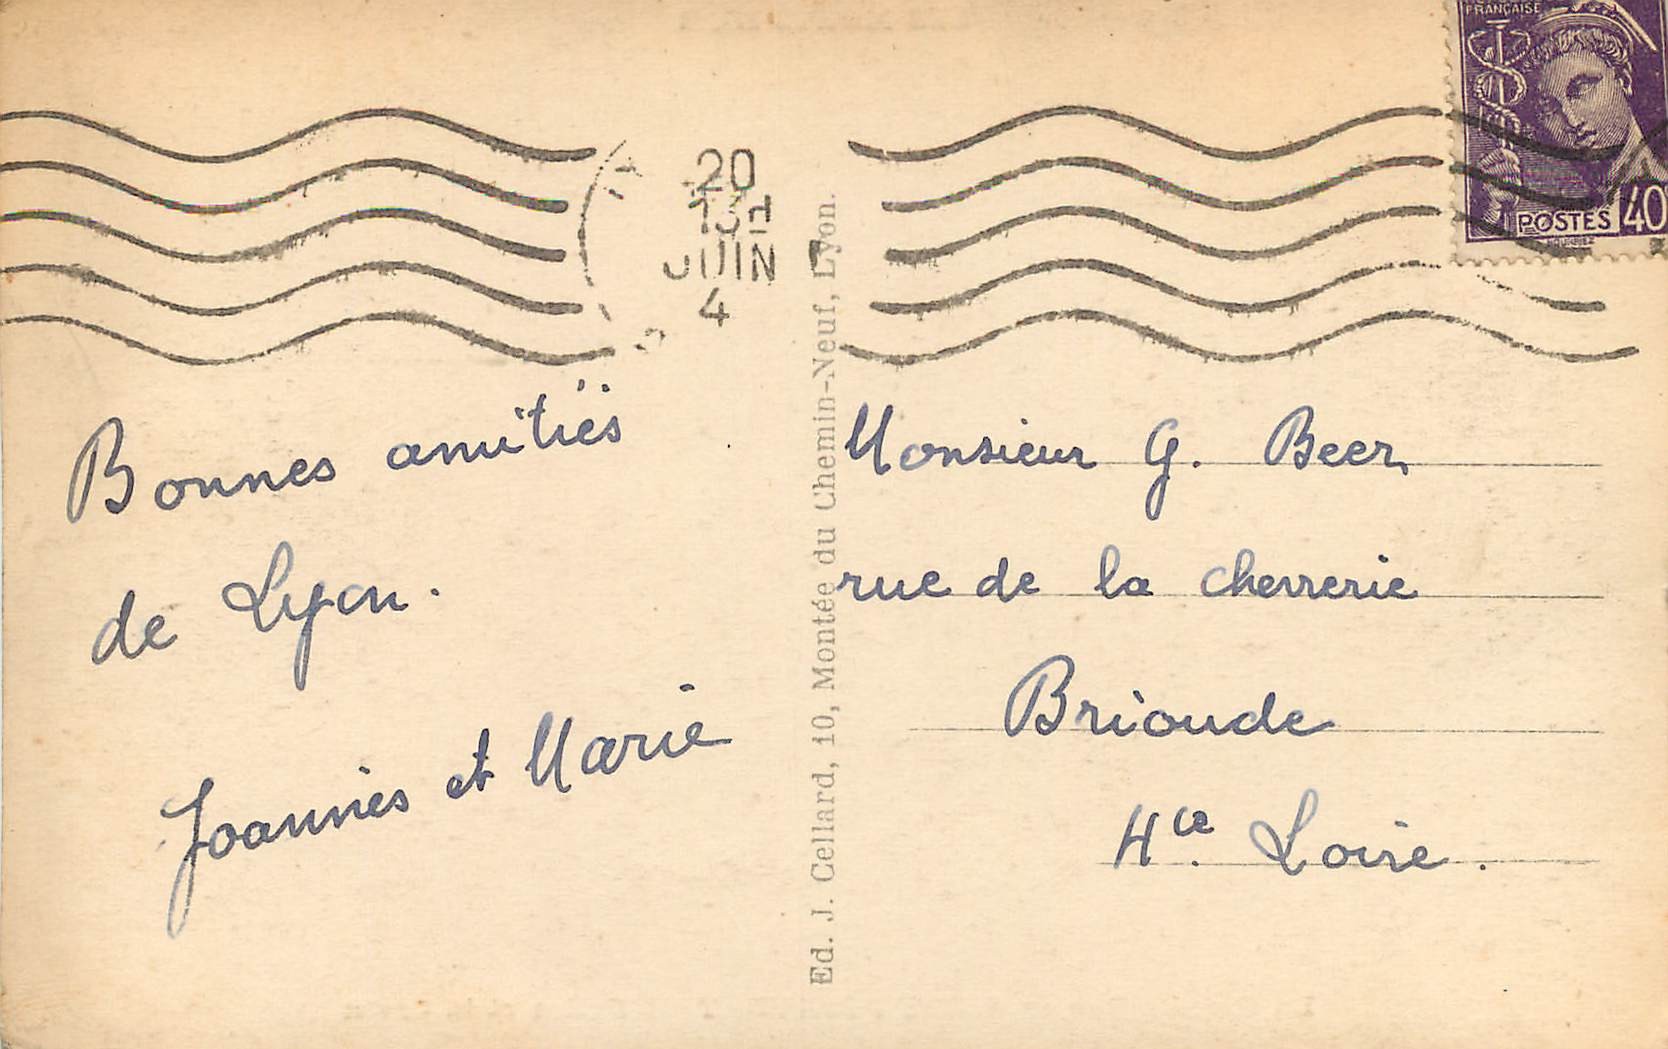 FRANÇAISE
POSTES 40
20
13H
JUIN
4
Bonnes amitiés
de Lyon.
Joannès et Marie
Ed. J. Cellard, 10, Montée du Chemin-Neuf, Lyon.
Monsieur G. Beer
rue de la
Brioude
Hte Loire.